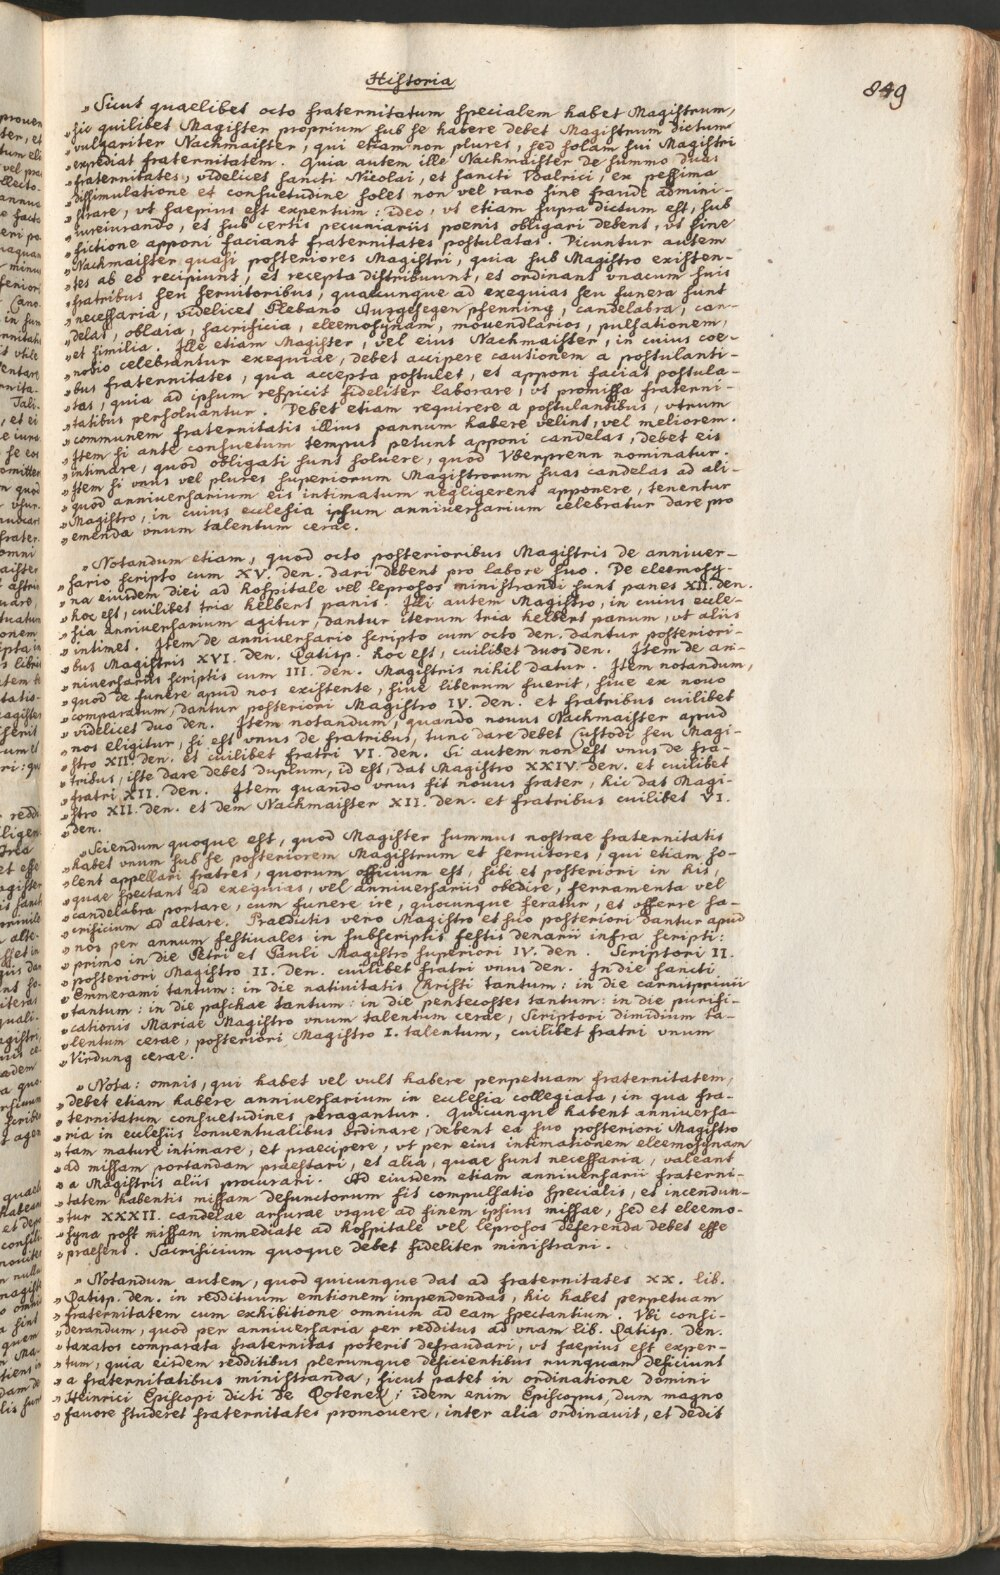 Historia
849
„Sicut quaelibet octo fraternitatum specialem habet Magistrum,
„sic quilibet Magister proprium sub se habere debet Magistrum dictum
„vulgariter Nachmaister, qui etiam non plures, sed solam sui Magistri
„expediat fraternitatem. Quia autem ille Nachmaister de summo duas
„fraternitates, videlicet sancti Nicolai, et sancti Valrici, ex pessima
„dissimulatione et consuetudine solet non vel raro sine fraude admini-
„strare, vt saepius est expertum: ideo, vt etiam supra dictum est, sub
„iureiurando, et sub certis pecuniariis poenis obligari debent, vt sine
„fictione apponi faciant fraternitates postulatas. Dicuntur autem
„Nachmaister quasi posteriores Magistri, quia sub Magistro existen-
„tes ab eo recipiunt, et recepta distribuunt, et ordinant vnacum suis
„fratribus seu seruitoribus, quaecunque ad exequias seu funera sunt
„necessaria, videlicet Plebano Auzgesegen pfenning, candelabra, can-
„delas, oblaia, sacrificia, eleemosynam, mouendlarios, pulsationem,
„et similia. Ille etiam Magister, vel eius Nachmaister, in cuius coe-
„nobio celebrantur exequiae, debet accipere cautionem a postulanti-
„bus fraternitates, qua accepta postulet, et apponi faciat postula-
„tas, quia ad ipsum respicit fideliter laborare, vt promissa fraterni-
„tatibus persoluantur. Debet etiam requirere a postulantibus, vtrum
„communem fraternitatis illius pannum habere velint, vel meliorem.
„Item si ante consuetum tempus petunt apponi candelas, debet eis
„intimare, quod obligati sunt soluere, quod Vberprenn nominatur.
„Item si vnus vel plures superiorum Magistrorum suas candelas ad ali-
„quod anniuersarium eis intimatum negligerent apponere, tenentur
„Magistro, in cuius ecclesia ipsum anniuersarium celebratur dare pro
„emenda vnum talentum cerae.
„Notandum etiam, quod octo posterioribus Magistris de anniuer-
„sario scripto cum XV. den. dari debent pro labore suo. De eleemosy-
„na eiusdem diei ad hospitale vel leprosos ministrandi sunt panes XII. den.
„hoc est, cuilibet tria helbert panis. Illi autem Magistro, in cuius eccle-
„sia anniuersarium agitur, dantur iterum tria helbert panum, vt aliis
„intimet. Item de anniuersario scripto cum octo den. dantur posteriori-
„bus Magistris XVI. den. Ratisp. hoc est, cuilibet duos den. Item de an-
„niuersariis scriptis cum III. den. Magistris nihil datur. Item notandum,
„quod de funere apud nos existente, siue liberum fuerit, siue ex nouo
„comparatum, dantur posteriori Magistro IV. den. et fratribus cuilibet
„videlicet duo den. Item notandum, quando nouus Nachmaister apud
„nos eligitur, si est vnus de fratribus, tunc dare debet Custodi seu Magi-
„stro XII. den. et cuilibet fratri VI. den. Si autem non est vnus de fra-
„tribus, iste dare debet duplum, id est, dat Magistro XXIV. den. et cuilibet
„fratri XII. den. Item quando vnus fit nouus frater, hic dat Magi-
„stro XII. den. et dem Nachmaister XII. den. et fratribus cuilibet VI.
„den.
„Sciendum quoque est, quod Magister summus nostrae fraternitatis
„habet vnum sub se posteriorem Magistrum et seruitores, qui etiam so-
„lent appellari fratres, quorum officium est, sibi et posteriori in his,
„quae spectant ad exequias, vel anniuersariis obedire, ferramenta vel
„candelabra portare, cum funere ire, quocunque feratur, et offerre sa-
„crificium ad altare. Praedictis vero Magistro et suo posteriori dantur apud
„nos per annum festiuales in subscriptis festis denarii infra scripti:
„primo in die Petri et Pauli Magistro superiori IV. den. Scriptori II.
„posteriori Magistro II. den. cuilibet fratri vnus den. In die sancti
„Emmerami tantum: in die natiuitatis Christi tantum: in die carnispriuii
„tantum: in die paschae tantum: in die pentecostes tantum: in die purifi-
„cationis Mariae Magistro vnum talentum cerae, Scriptori dimidium ta-
„lentum cerae, posteriori Magistro I. talentum, cuilibet fratri vnum
„Virdung cerae.
„Nota: omnis, qui habet vel vult habere perpetuam fraternitatem,
„debet etiam habere anniuersarium in ecclesia collegiata, in qua fra-
„ternitatum consuetudines peragantur. Quicunque habent anniuersa-
„ria in ecclesiis conuentualibus ordinare, debent ea suo posteriori Magistro
„tam mature intimare, et praecipere, vt per eius intimationem eleemosynam
„ad missam portandam praestari, et alia, quae sunt necessaria, valeant
„a Magistris aliis procurari. Ad eiusdem etiam anniuersarii fraterni-
„tatem habentis missam defunctorum fit compulsatio specialis, et incendun-
„tur XXXII. candelae arsurae vsque ad finem ipsius missae, sed et eleemo-
„syna post missam immediate ad hospitale vel leprosos deferenda debet esse
„praesens. Sacrificium quoque debet fideliter ministrari.
„Notandum autem, quod quicunque dat ad fraternitates XX. lib.
„Ratisp. den. in reddituum emtionem impendendas, hic habet perpetuam
„fraternitatem cum exhibitione omnium ad eam spectantium. Vbi consi-
„derandum, quod per anniuersaria per redditus ad vnam lib. Ratisp. den.
„taxatos comparata fraternitas poterit defraudari, vt saepius est exper-
„tum, quia eisdem redditibus plerumque deficientibus nunquam deficiunt
„a fraternitatibus ministranda, sicut patet in ordinatione domini
„Heinrici Episcopi dicti de Rotenek; idem enim Episcopus, dum magno
„fauore studeret fraternitates promouere, inter alia ordinauit, et dedit